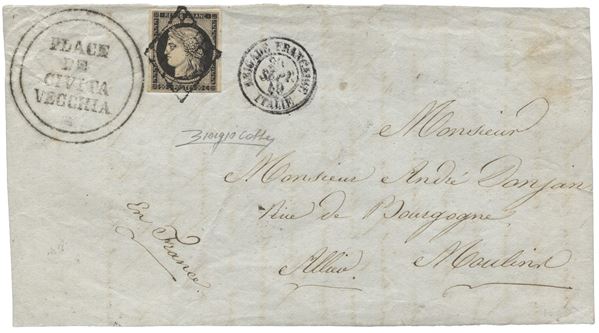 PLACE
DE
CIVITA
VECCHIA
REPUB. FRANC.
BRIGADE FRANÇAISE
SEPT.
49
ITALIE
Monsieur
Monsieur André Donjan
Rue de Bourgogne
Allier Moulins
En France